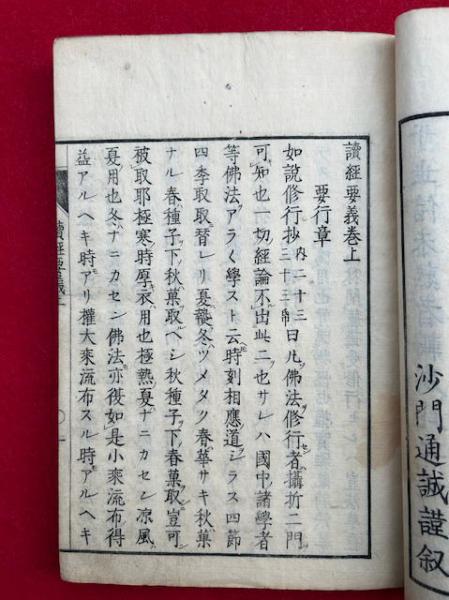 沙門通誠謹叙
讀経要義巻上
要行章
如説修行抄内二十三三十三帋曰凡佛法修行者攝折二門
可知也一切経論不出此二也サレハ國中諸學者
等佛法アラ〱學スト云時刻相應道シラス四節
四季取取替レリ夏熱冬ツメタク春華サキ秋菓
ナル春種子下秋菓取ヘシ秋種子下春菓取豈可
被取耶極寒時厚衣用也極熱夏ナニカセン凉風
夏用也冬ナニカセン佛法亦復如是小乗流布得
益アルヘキ時アリ權大乗流布スル時アルヘキ
讀経要義上